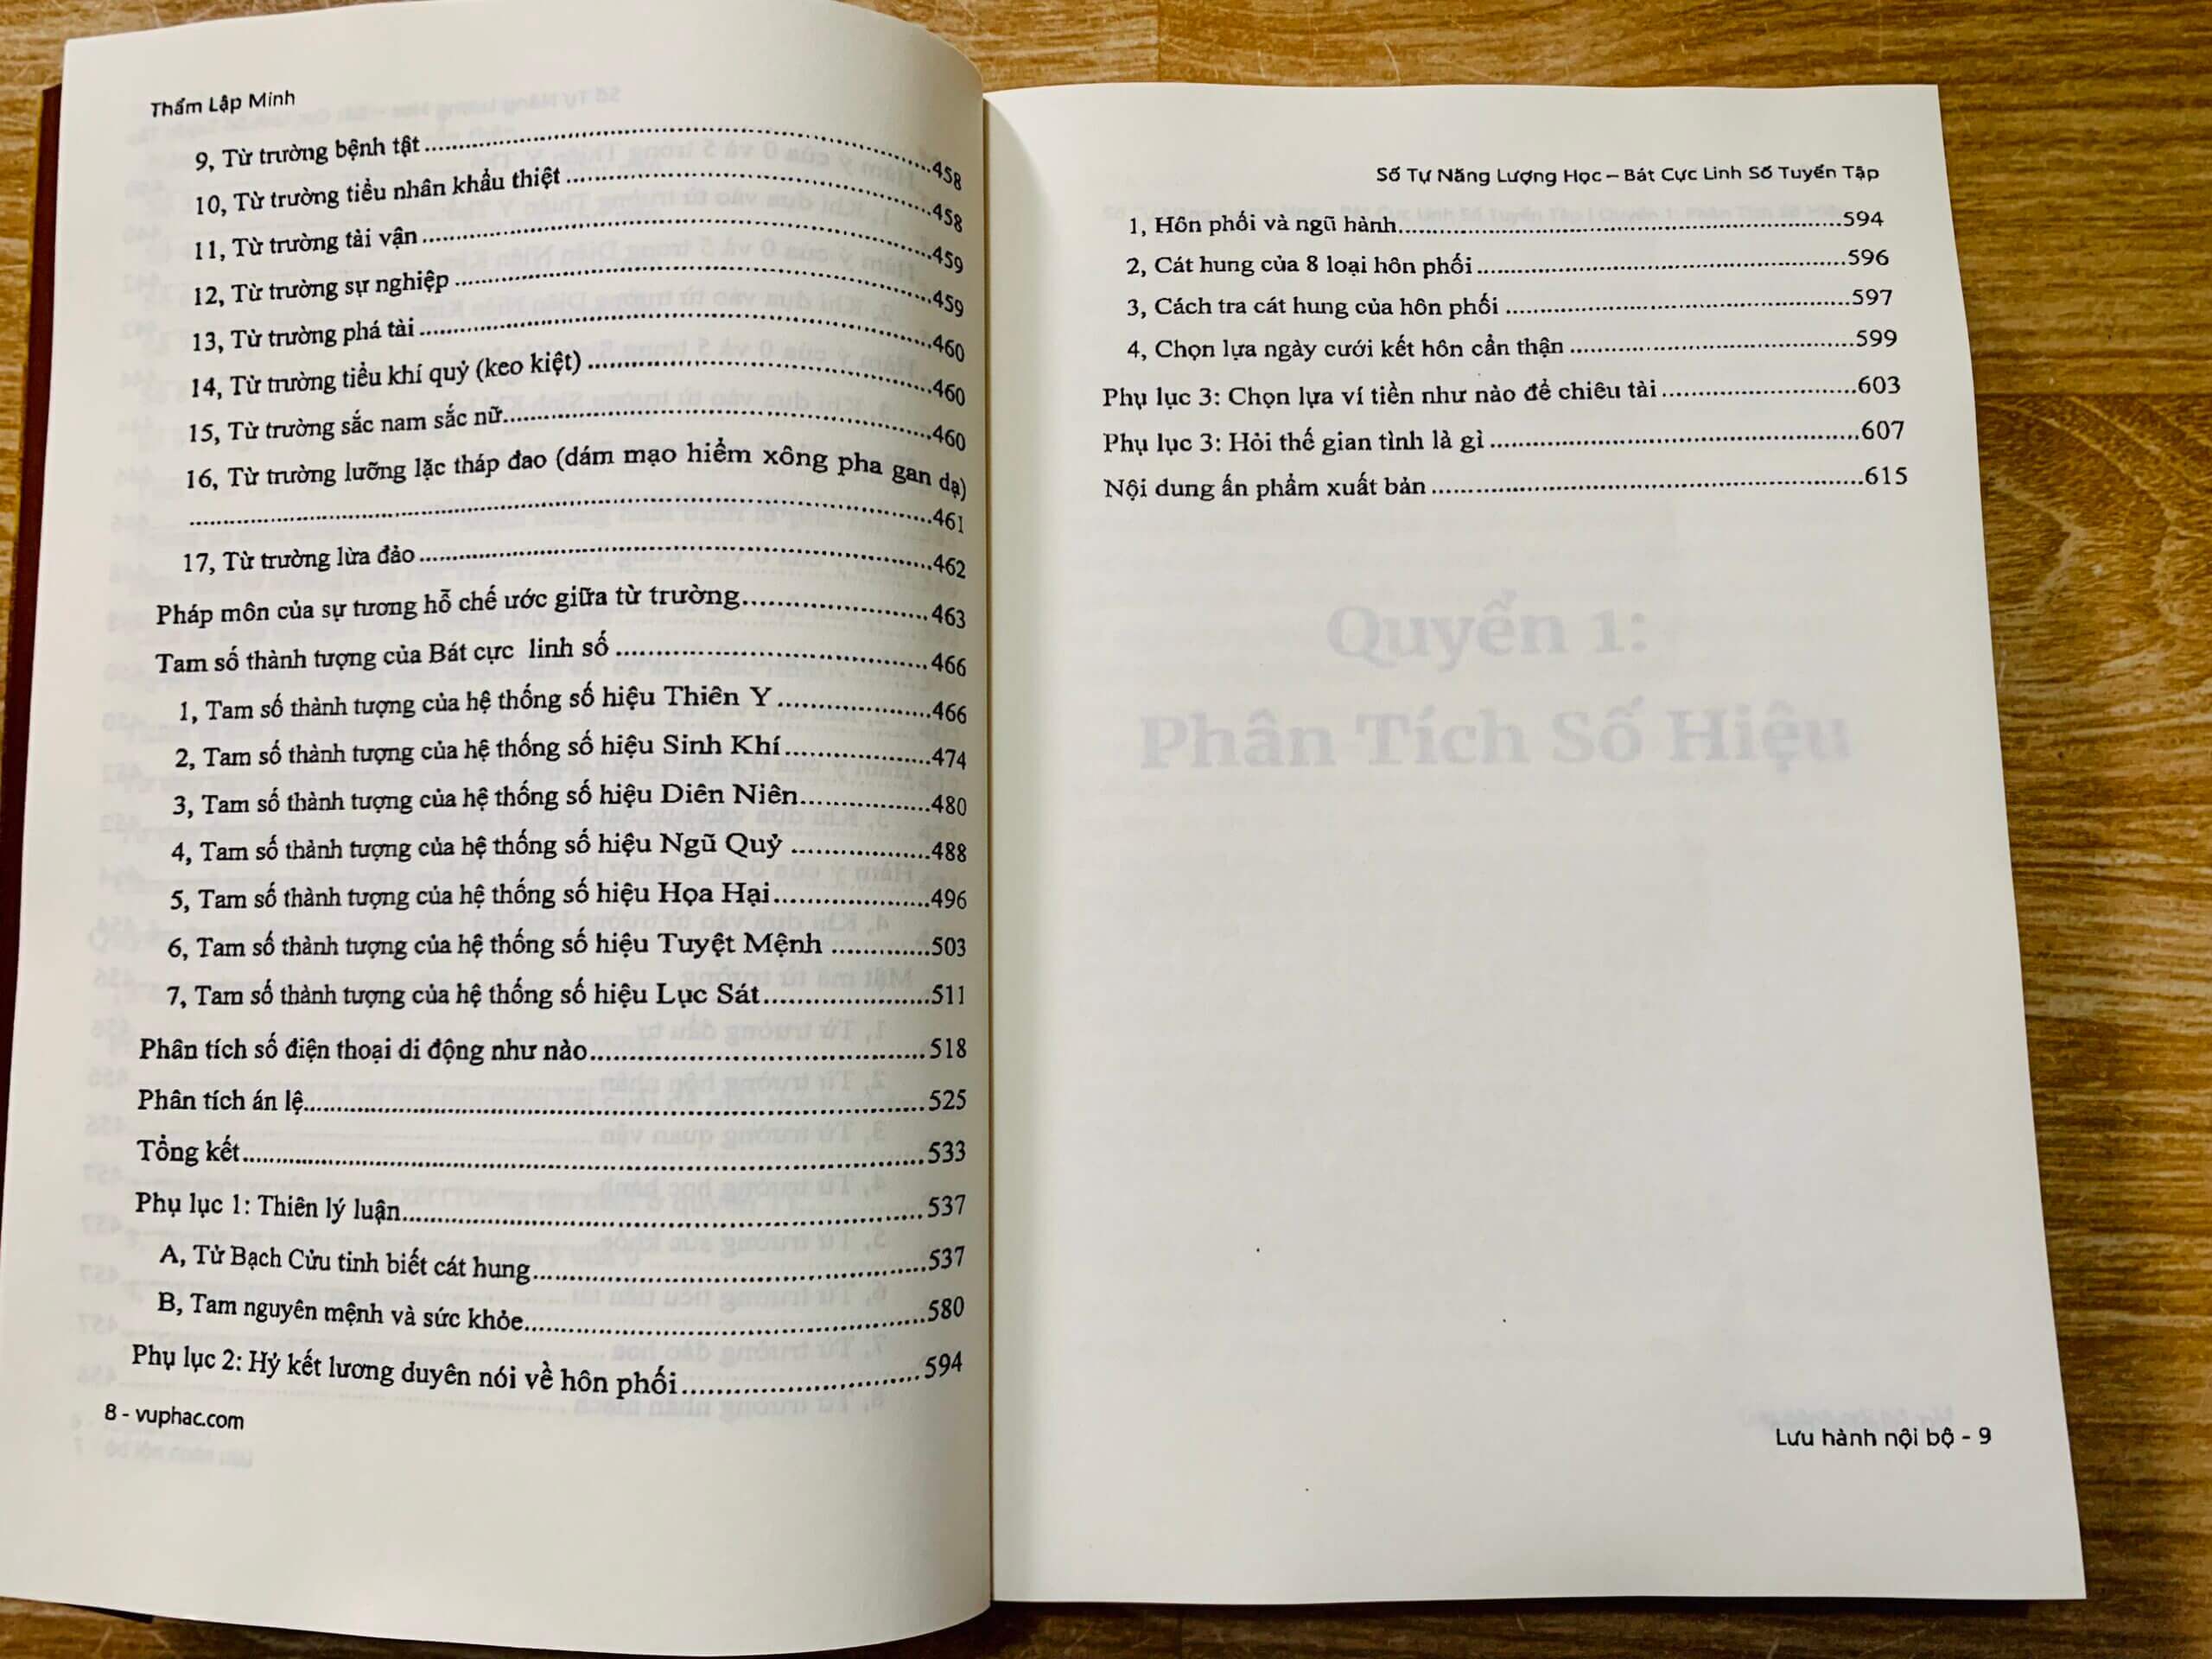 Thẩm Lập Minh
9, Từ trường bệnh tật ........ 458
10, Từ trường tiểu nhân khẩu thiệt ........ 458
11, Từ trường tài vận ........ 459
12, Từ trường sự nghiệp ........ 459
13, Từ trường phá tài ........ 460
14, Từ trường tiểu khí quỷ (keo kiệt) ........ 460
15, Từ trường sắc nam sắc nữ ........ 460
16, Từ trường lưỡng lặc tháp đao (dám mạo hiểm xông pha gan dạ)
........ 461
17, Từ trường lừa đảo ........ 462
Pháp môn của sự tương hỗ chế ước giữa từ trường ........ 463
Tam số thành tượng của Bát cực linh số ........ 466
1, Tam số thành tượng của hệ thống số hiệu Thiên Y ........ 466
2, Tam số thành tượng của hệ thống số hiệu Sinh Khí ........ 474
3, Tam số thành tượng của hệ thống số hiệu Diên Niên ........ 480
4, Tam số thành tượng của hệ thống số hiệu Ngũ Quỷ ........ 488
5, Tam số thành tượng của hệ thống số hiệu Họa Hại ........ 496
6, Tam số thành tượng của hệ thống số hiệu Tuyệt Mệnh ........ 503
7, Tam số thành tượng của hệ thống số hiệu Lục Sát ........ 511
Phân tích số điện thoại di động như nào ........ 518
Phân tích án lệ ........ 525
Tổng kết ........ 533
Phụ lục 1: Thiên lý luận ........ 537
A, Tử Bạch Cửu tinh biết cát hung ........ 537
B, Tam nguyên mệnh và sức khỏe ........ 580
Phụ lục 2: Hỷ kết lương duyên nói về hôn phối ........ 594
8 - vuphac.com
Số Tự Năng Lượng Học – Bát Cực Linh Số Tuyển Tập
1, Hôn phối và ngũ hành ........ 594
2, Cát hung của 8 loại hôn phối ........ 596
3, Cách tra cát hung của hôn phối ........ 597
4, Chọn lựa ngày cưới kết hôn cẩn thận ........ 599
Phụ lục 3: Chọn lựa ví tiền như nào để chiêu tài ........ 603
Phụ lục 3: Hỏi thế gian tình là gì ........ 607
Nội dung ấn phẩm xuất bản ........ 615
Quyển 1:
Phân Tích Số Hiệu
Lưu hành nội bộ - 9